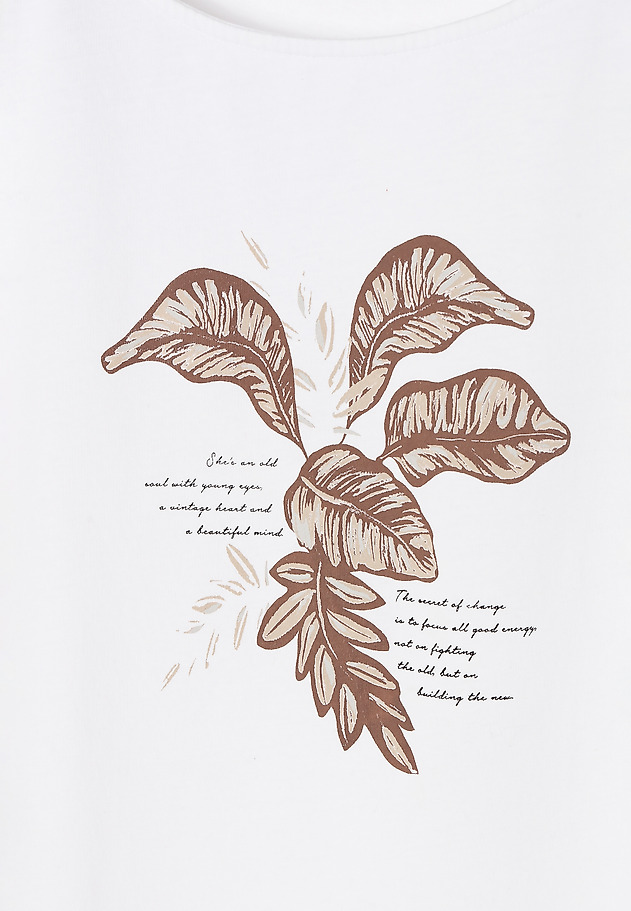 She's an old
soul with young eyes,
a vintage heart and
a beautiful mind.
The secret of change
is to focus all good energy,
not on fighting
the old, but on
building the new.